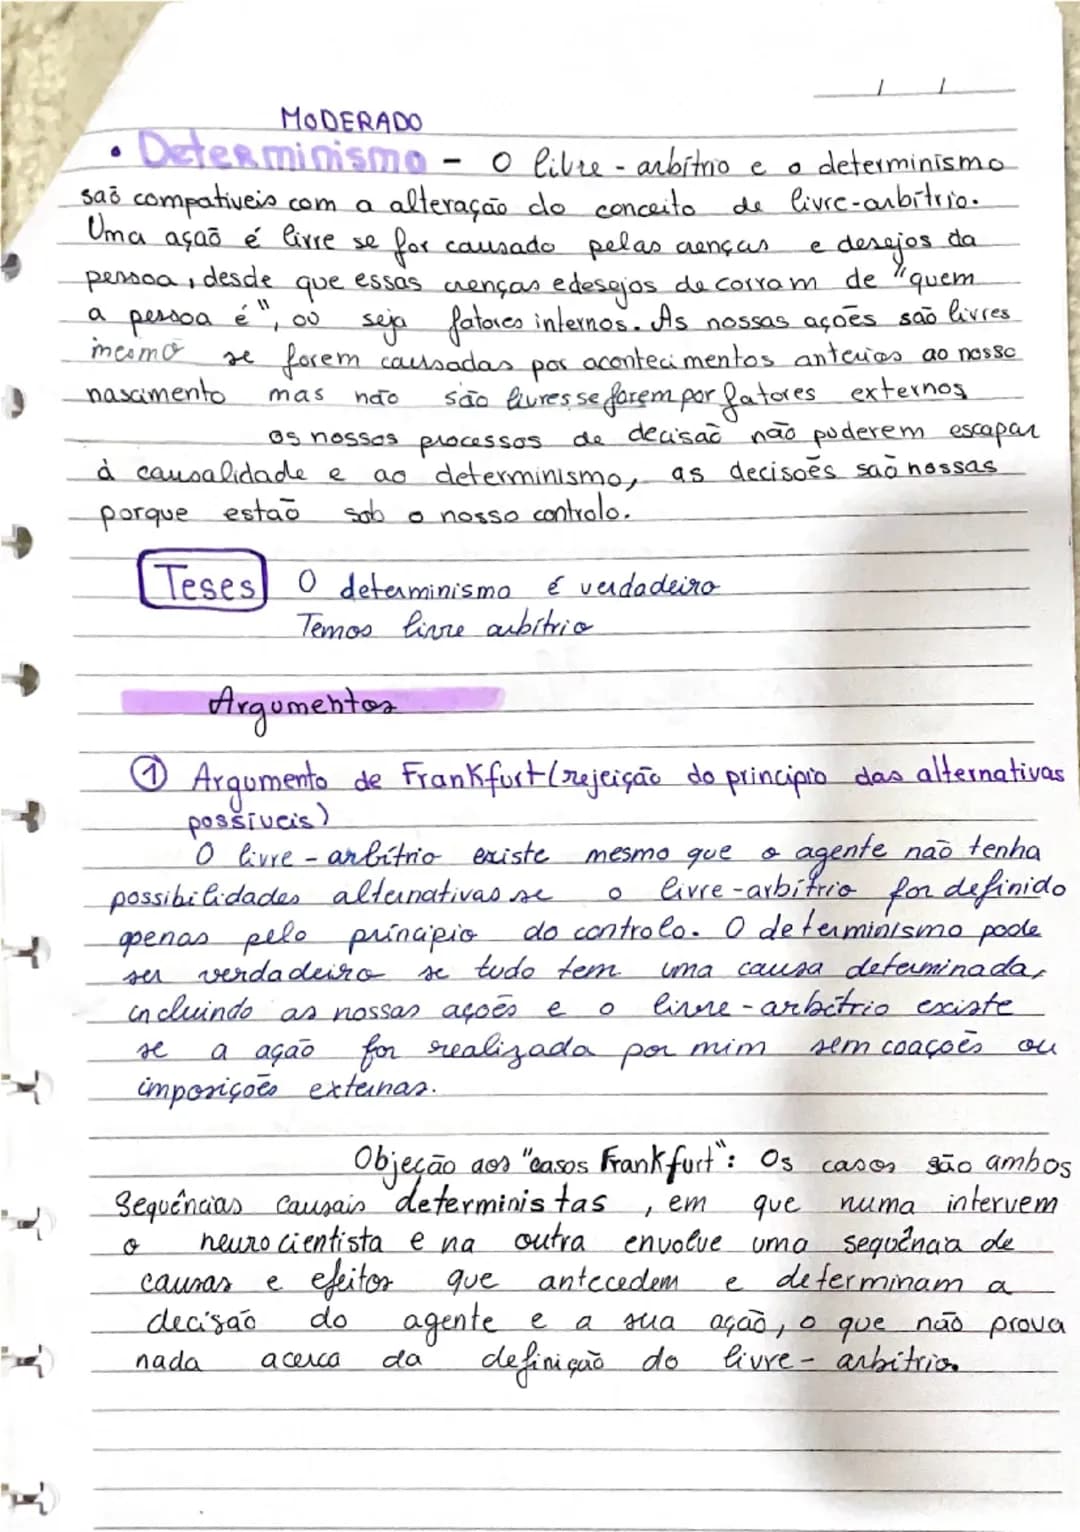 MODERADO
• Determinismo - O livre-arbítrio e o determinismo
são compativeis com a alteração do conceito de livre-arbítrio.
Uma ação é livre se for causado pelas crenças e desejos da
pessoa, desde que essas crenças e desejos decorram de "quem
a pessoa é", ou seja fatores internos. As nossas ações são livres
mesmo se forem causadas por acontecimentos anterios ao nosso
nascimento mas não são livres se forem por fatores externos
os nossos processos de decisão não poderem escapar
à causalidade e ao determinismo, as decisões são nossas
porque estão sob o nosso controlo.
Teses O determinismo é verdadeiro
Temos livre arbítrio
Argumentos
① Argumento de Frankfurt (rejeição do principio das alternativas
possíveis)
O livre-arbítrio existe mesmo que o agente não tenha
possibilidades alternativas se o livre-arbítrio for definido
apenas pelo príncipio do controlo. O determinismo pode
ser verdadeiro se tudo tem uma causa determinada,
incluindo as nossas ações e o livre-arbítrio existe
se a ação for realizada por mim sem coações ou
imposições externas.
Objeção aos "casos Frankfurt": Os casos são ambos
Sequências causais deterministas, em que numa intervem
o neurocientista e na outra envolve uma sequência de
causas e efeitos que antecedem e determinam a
decisão do agente e a sua ação, o que não prova
nada acerca da definição do livre-arbítrio.